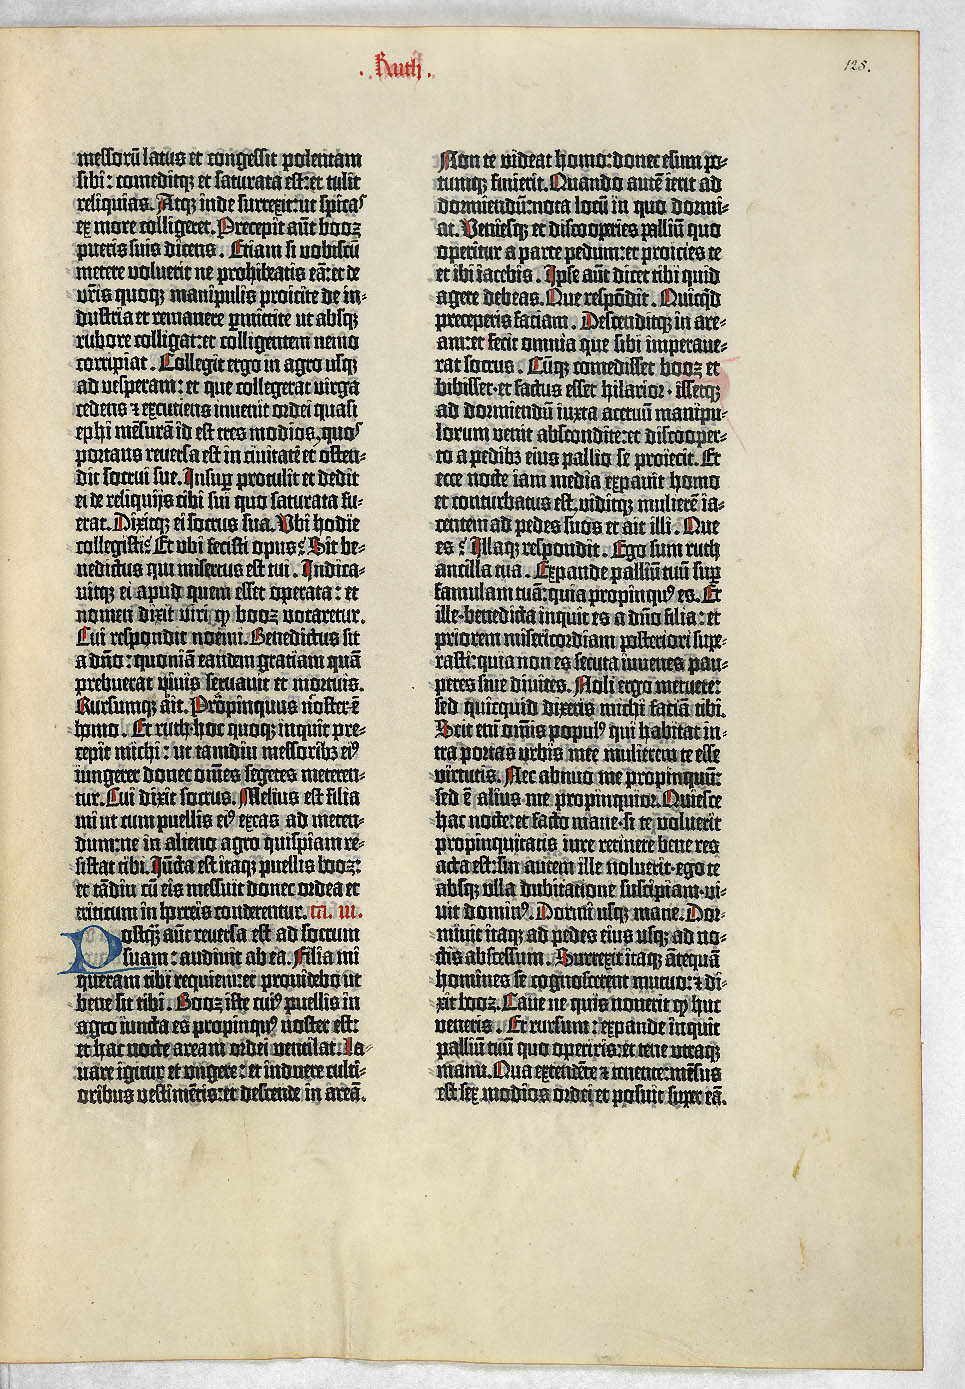 . Ruth .
125.
messorū latus et congessit polentam
sibi : comeditq; et saturata est : et tulit
reliquias . Atq; inde surrexit : ut spicas
ex more colligeret . Precepit aūt booz
pueris suis dicens . Etiam si vobiscū
metere voluerit ne prohibeatis eā : et de
vr̄is quoq; manipulis proicite de in-
dustria et remanere ꝑmittite ut absq;
rubore colligat : et colligentem nemo
corripiat . Collegit ergo in agro usq;
ad vesperam : et que collegerat virga
cedens ⁊ excutiens invenit ordei quasi
ephi mēsurā id est tres modios , quos
portans reversa est in civitatē et osten-
dit socrui sue . Insuꝑ protulit et dedit
ei de reliquijs cibi sui quo saturata fu-
erat . Dixitq; ei socrus sua . Ubi hodie
collegisti ? Et ubi fecisti opus ? Sit be-
nedictus qui misertus est tui . Indica-
vitq; ei apud quem esset operata : et
nomen dixit viri ꝙ booz vocaretur .
Cui respondit noēmi . Benedictus sit
a dn̄o : quoniā eandem gratiam quā
prebuerat vivis servavit et mortuis .
Rursumq; ait . Propinquus noster ē
homo . Et ruth · hoc quoq; inquit pre-
cepit michi : ut tamdiu messoribꝫ eiꝰ
iungerer donec om̄es segetes meteren-
tur . Cui dixit socrus . Melius est filia
mi ut cum puellis eiꝰ exeas ad meten-
dum : ne in alieno agro quispiam re-
sistat tibi . Iūcta est itaq; puellis booz :
et tādiu cū eis messuit donec ordea et
triticum in horreis conderentur . ca. iii.
Postq̄ aūt reversa est ad socrum
suam : audivit ab ea . Filia mi
queram tibi requiem : et providebo ut
bene sit tibi . Booz iste cuiꝰ puellis in
agro iuncta es propinquꝰ noster est :
et hac nocte aream ordei ventilat . La-
vare igitur et ungere : et induere culti-
oribus vestimētis : et descende in areā .
Non te videat homo : donec esum po-
tumq; finierit . Quando autē ierit ad
dormiendū : nota locū in quo dormi-
at . Veniesq; et discooperies palliū quo
operitur a parte pedum : et proicies te
et ibi iacebis . Ipse aūt dicet tibi quid
agere debeas . Que respōdit . Quicq̇d
preceperis faciam . Descenditq; in are-
am : et fecit omnia que sibi imperave-
rat socrus . Cūq; comedisset booz et
bibisset · et factus esset hilarior · issetq;
ad dormiendū iuxta acervū manipu-
lorum venit abscondite : et discooper-
to a pedibꝫ eius pallio se proiecit . Et
ecce nocte iam media expavit homo
et conturbatus est . viditq; mulierē ia-
centem ad pedes suos et ait illi . Que
es ? Illaq; respondit . Ego sum ruth
ancilla tua . Expande palliū tuū suꝑ
famulam tuā : quia propinquꝰ es . Et
ille · benedicta inquit es a dn̄o filia : et
priorem misericordiam posteriori supe-
rasti : quia non es secuta iuvenes pau-
peres sive divites . Noli ergo metuere :
sed quicquid dixeris michi faciā tibi .
Scit eni om̄is populꝰ qui habitat in-
tra portas urbis mee mulierem te esse
virtutis . Nec abnuo me propinquū :
sed ē alius me propinquior . Quiesce
hac nocte : et facto mane · si te voluerit
propinquitatis iure retinere bene res
acta est : sin autem ille noluerit · ego te
absq; ulla dubitatione suscipiam · vi-
vit dominꝰ . Dormi usq; mane . Dor-
mivit itaq; ad pedes eius usq; ad no-
ctis abscessum . Surrexit itaq; ātequā
homines se cognoscerent mutuo : ⁊ di-
xit booz . Cave ne quis noverit ꝙ huc
veneris . Et rursum : expande inquit
palliū tuū quo operiris : et tene utraq;
manu . Qua extendēte ⁊ tenente : mēsus
est sex modios ordei et posuit super eā .